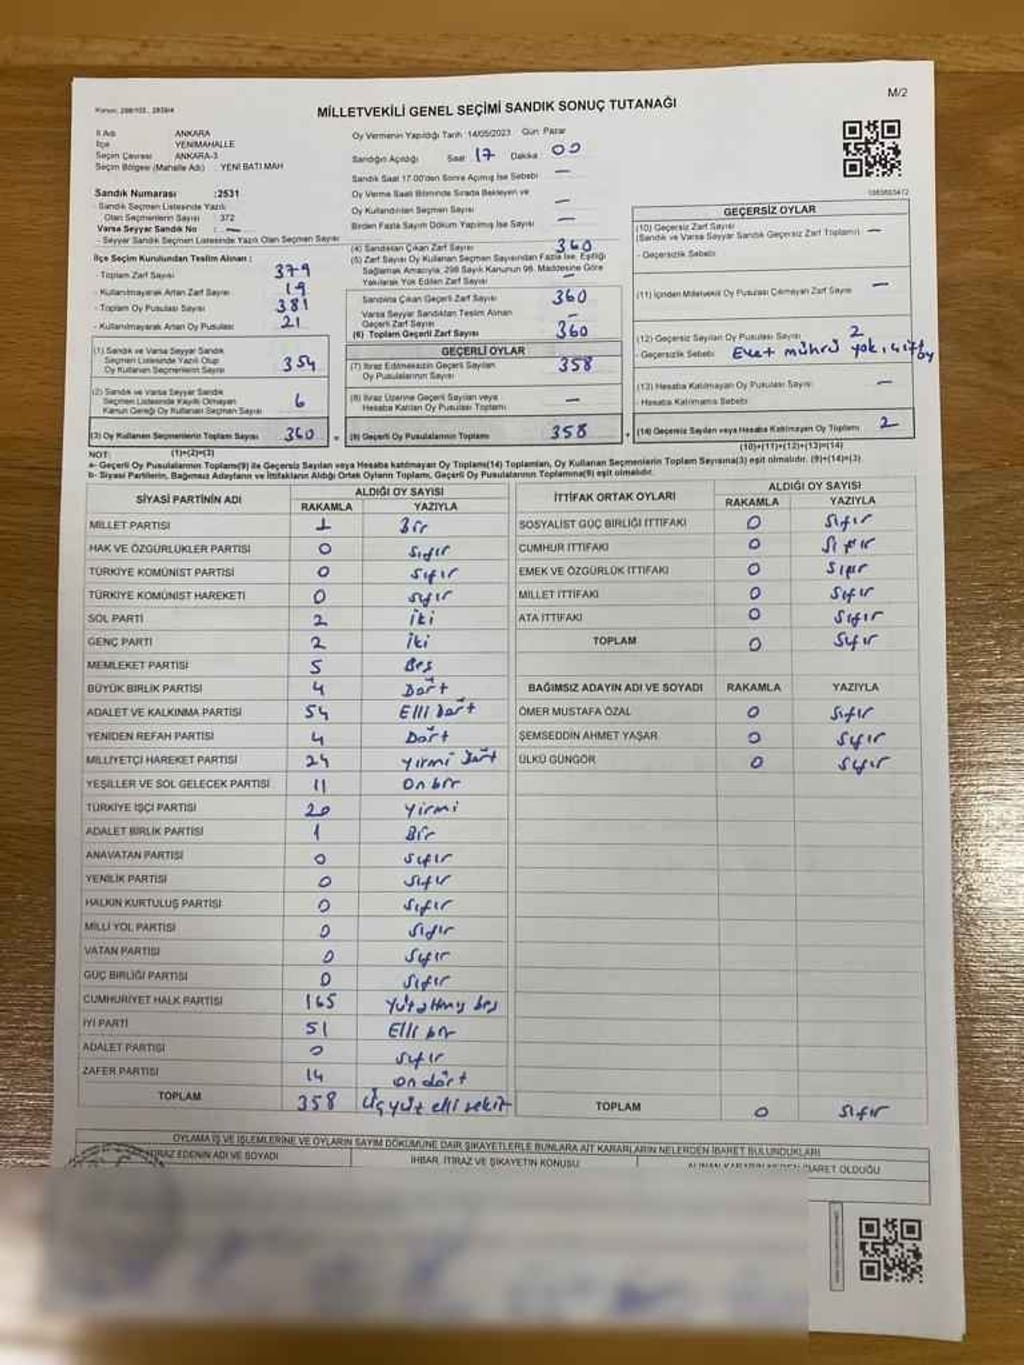 Kanun: 298/105, 2839/4
M/2
MİLLETVEKİLİ GENEL SEÇİMİ SANDIK SONUÇ TUTANAĞI
İl Adı ANKARA
İlçe YENİMAHALLE
Seçim Çevresi ANKARA-3
Seçim Bölgesi (Mahalle Adı) : YENİ BATI MAH
Sandık Numarası :2531
- Sandık Seçmen Listesinde Yazılı
Olan Seçmenlerin Sayısı : 372
Varsa Seyyar Sandık No : —
- Seyyar Sandık Seçmen Listesinde Yazılı Olan Seçmen Sayısı
İlçe Seçim Kurulundan Teslim Alınan :
- Toplam Zarf Sayısı 379
- Kullanılmayarak Artan Zarf Sayısı 19
- Toplam Oy Pusulası Sayısı 381
- Kullanılmayarak Artan Oy Pusulası 21
(1) Sandık ve Varsa Seyyar Sandık
Seçmen Listesinde Yazılı Olup
Oy Kullanan Seçmen Sayısı 354
(2) Sandık ve Varsa Seyyar Sandık
Seçmen Listesinde Kayıtlı Olmayan
Kanun Gereği Oy Kullanan Seçmen Sayısı 6
(3) Oy Kullanan Seçmenlerin Toplam Sayısı 360 =
Oy Vermenin Yapıldığı Tarih :14/05/2023 Gün: Pazar
Sandığın Açıldığı Saat 17 Dakika 00
Sandık Saat 17.00'den Sonra Açılmış İse Sebebi —
Oy Verme Saati Bitiminde Sırada Bekleyen ve
Oy Kullandırılan Seçmen Sayısı —
Birden Fazla Sayım Döküm Yapılmış İse Sayısı —
(4) Sandıktan Çıkan Zarf Sayısı 360
(5) Zarf Sayısı Oy Kullanan Seçmen Sayısından Fazla İse, Eşitliği
Sağlamak Amacıyla, 298 Sayılı Kanunun 98. Maddesine Göre
Yakılarak Yok Edilen Zarf Sayısı —
Sandıkta Çıkan Geçerli Zarf Sayısı 360
Varsa Seyyar Sandıktan Teslim Alınan
Geçerli Zarf Sayısı —
(6) Toplam Geçerli Zarf Sayısı 360
GEÇERLİ OYLAR
(7) İtiraz Edilmeksizin Geçerli Sayılan
Oy Pusulalarının Sayısı 358
(8) İtiraz Üzerine Geçerli Sayılan veya
Hesaba Katılan Oy Pusulası Toplamı —
(9) Geçerli Oy Pusulalarının Toplamı 358 +
GEÇERSİZ OYLAR
(10) Geçersiz Zarf Sayısı
(Sandık ve Varsa Seyyar Sandık Geçersiz Zarf Toplamı) —
- Geçersizlik Sebebi:
(11) İçinden Milletvekili Oy Pusulası Çıkmayan Zarf Sayısı —
(12) Geçersiz Sayılan Oy Pusulası Sayısı 2
- Geçersizlik Sebebi: Evet mührü yok, çift oy
(13) Hesaba Katılmayan Oy Pusulası Sayısı: —
- Hesaba Katılmama Sebebi:
(14) Geçersiz Sayılan veya Hesaba Katılmayan Oy Toplamı 2
(10)+(11)+(12)+(13)=(14)
NOT: (1)+(2)=(3)
a- Geçerli Oy Pusulalarının Toplamı(9) ile Geçersiz Sayılan veya Hesaba katılmayan Oy Toplamı(14) Toplamları, Oy Kullanan Seçmenlerin Toplam Sayısına(3) eşit olmalıdır. (9)+(14)=(3).
b- Siyasi Partilerin, Bağımsız Adayların ve İttifakların Aldığı Ortak Oyların Toplamı, Geçerli Oy Pusulalarının Toplamına(9) eşit olmalıdır.
SİYASİ PARTİNİN ADI ALDIĞI OY SAYISI
RAKAMLA YAZIYLA
MİLLET PARTİSİ 1 Bir
HAK VE ÖZGÜRLÜKLER PARTİSİ 0 Sıfır
TÜRKİYE KOMÜNİST PARTİSİ 0 Sıfır
TÜRKİYE KOMÜNİST HAREKETİ 0 Sıfır
SOL PARTİ 2 İki
GENÇ PARTİ 2 İki
MEMLEKET PARTİSİ 5 Beş
BÜYÜK BİRLİK PARTİSİ 4 Dört
ADALET VE KALKINMA PARTİSİ 54 Elli Dört
YENİDEN REFAH PARTİSİ 4 Dört
MİLLİYETÇİ HAREKET PARTİSİ 24 Yirmi Dört
YEŞİLLER VE SOL GELECEK PARTİSİ 11 On bir
TÜRKİYE İŞÇİ PARTİSİ 20 Yirmi
ADALET BİRLİK PARTİSİ 1 Bir
ANAVATAN PARTİSİ 0 Sıfır
YENİLİK PARTİSİ 0 Sıfır
HALKIN KURTULUŞ PARTİSİ 0 Sıfır
MİLLİ YOL PARTİSİ 0 Sıfır
VATAN PARTİSİ 0 Sıfır
GÜÇ BİRLİĞİ PARTİSİ 0 Sıfır
CUMHURİYET HALK PARTİSİ 165 Yüz altmış beş
İYİ PARTİ 51 Elli bir
ADALET PARTİSİ 0 Sıfır
ZAFER PARTİSİ 14 on dört
TOPLAM 358 Üçyüz elli sekiz
İTTİFAK ORTAK OYLARI ALDIĞI OY SAYISI
RAKAMLA YAZIYLA
SOSYALİST GÜÇ BİRLİĞİ İTTİFAKI 0 Sıfır
CUMHUR İTTİFAKI 0 Sıfır
EMEK VE ÖZGÜRLÜK İTTİFAKI 0 Sıfır
MİLLET İTTİFAKI 0 Sıfır
ATA İTTİFAKI 0 Sıfır
TOPLAM 0 Sıfır
BAĞIMSIZ ADAYIN ADI VE SOYADI RAKAMLA YAZIYLA
ÖMER MUSTAFA ÖZAL 0 Sıfır
ŞEMSEDDİN AHMET YAŞAR 0 Sıfır
ÜLKÜ GÜNGÖR 0 Sıfır
TOPLAM 0 Sıfır
OYLAMA İŞ VE İŞLEMLERİNE VE OYLARIN SAYIM DÖKÜMÜNE DAİR ŞİKAYETLERLE BUNLARA AİT KARARLARIN NELERDEN İBARET BULUNDUKLARI
İTİRAZ EDENİN ADI VE SOYADI İHBAR, İTİRAZ VE ŞİKAYETİN KONUSU ALINAN KARARIN NEDEN İBARET OLDUĞU